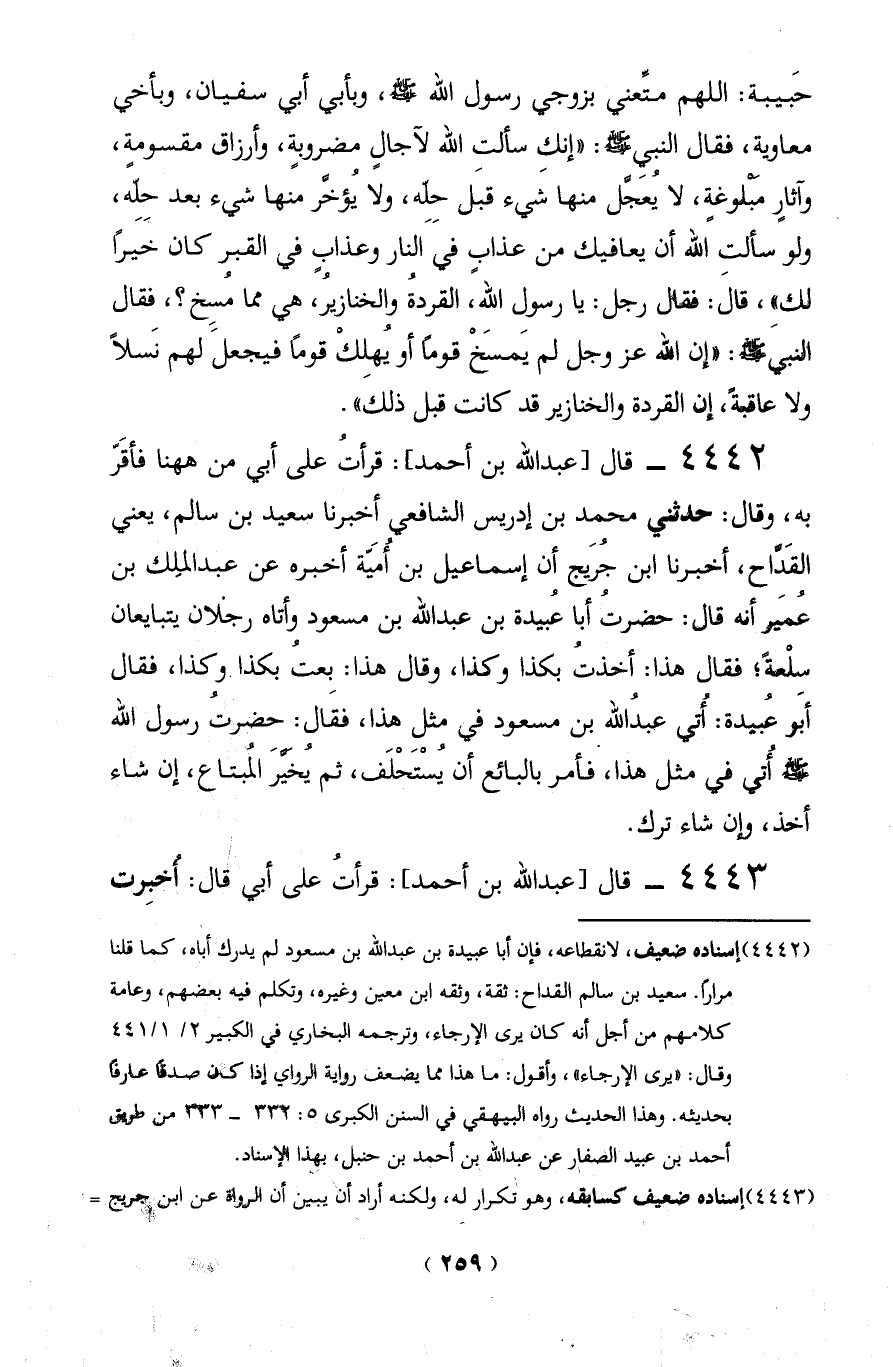 حَبيبة: اللهم متِّعني بزوجي رسول الله ﷺ، وبأبي أبي سفيان، وبأخي
معاوية، فقال النبيﷺ: «إنكِ سألتِ الله لآجالٍ مضروبةٍ، وأرزاق مقسومةٍ،
وآثارٍ مَبْلوغةٍ، لا يُعَجَّل منها شيء قبل حلِّه، ولا يُؤخَّر منها شيء بعد حِلِّه،
ولو سألتِ الله أن يعافيك من عذابٍ في النار وعذابٍ في القبر كان خيراً
لك»، قال: فقال رجل: يا رسول الله، القردة والخنازير، هي مما مُسخ؟، فقال
النبيﷺ: «إن الله عز وجل لم يَمسَخْ قوماً أو يُهلكْ قوماً فيجعلَ لهم نَسلاً
ولا عاقبةً، إن القردة والخنازير قد كانت قبل ذلك».
٤٤٤٢ ــ قال [عبدالله بن أحمد]: قرأتُ على أبي من ههنا فأقَرّ
به، وقال: حدثني محمد بن إدريس الشافعي أخبرنا سعيد بن سالم، يعني
القَدَّاح، أخبرنا ابن جُرَيج أن إسماعيل بن أُميَّة أخبره عن عبدالملِك بن
عُمَير أنه قال: حضرتُ أبا عُبيدة بن عبدالله بن مسعود وأتاه رجلان يتبايعان
سِلْعةً؛ فقال هذا: أخذتُ بكذا وكذا، وقال هذا: بعتُ بكذا وكذا، فقال
أبو عُبيدة: أُتي عبدُالله بن مسعود في مثل هذا، فقال: حضرتُ رسول الله
ﷺ أُتي في مثل هذا، فأمر بالبائع أن يُسْتَحْلَف، ثم يُخيَّرَ المُبتاع، إن شاء
أخذ، وإن شاء ترك.
٤٤٤٣ ــ قال [عبدالله بن أحمد]: قرأتُ على أبي قال: أُخبِرت
(٤٤٤٢) إسناده ضعيف، لانقطاعه، فإن أبا عبيدة بن عبدالله بن مسعود لم يدرك أباه، كما قلنا
مراراً. سعيد بن سالم القداح: ثقة، وثقه ابن معين وغيره، وتكلم فيه بعضهم، وعامة
كلامهم من أجل أنه كان يرى الإرجاء، وترجمه البخاري في الكبير ٢/ ١/ ٤٤١
وقال: «يرى الإرجاء»، وأقول: ما هذا مما يضعف رواية الرواي إذا كان صدقًا عارفًا
بحديثه. وهذا الحديث رواه البيهقي في السنن الكبرى ٥: ٣٣٢ ــ ٣٣٣ من طريق
أحمد بن عبيد الصفار عن عبدالله بن أحمد بن حنبل، بهذا الإسناد.
(٤٤٤٣) إسناده ضعيف كسابقه، وهو تكرار له، ولكنه أراد أن يبين أن الرواة عن ابن جريج =
(٢٥٩)